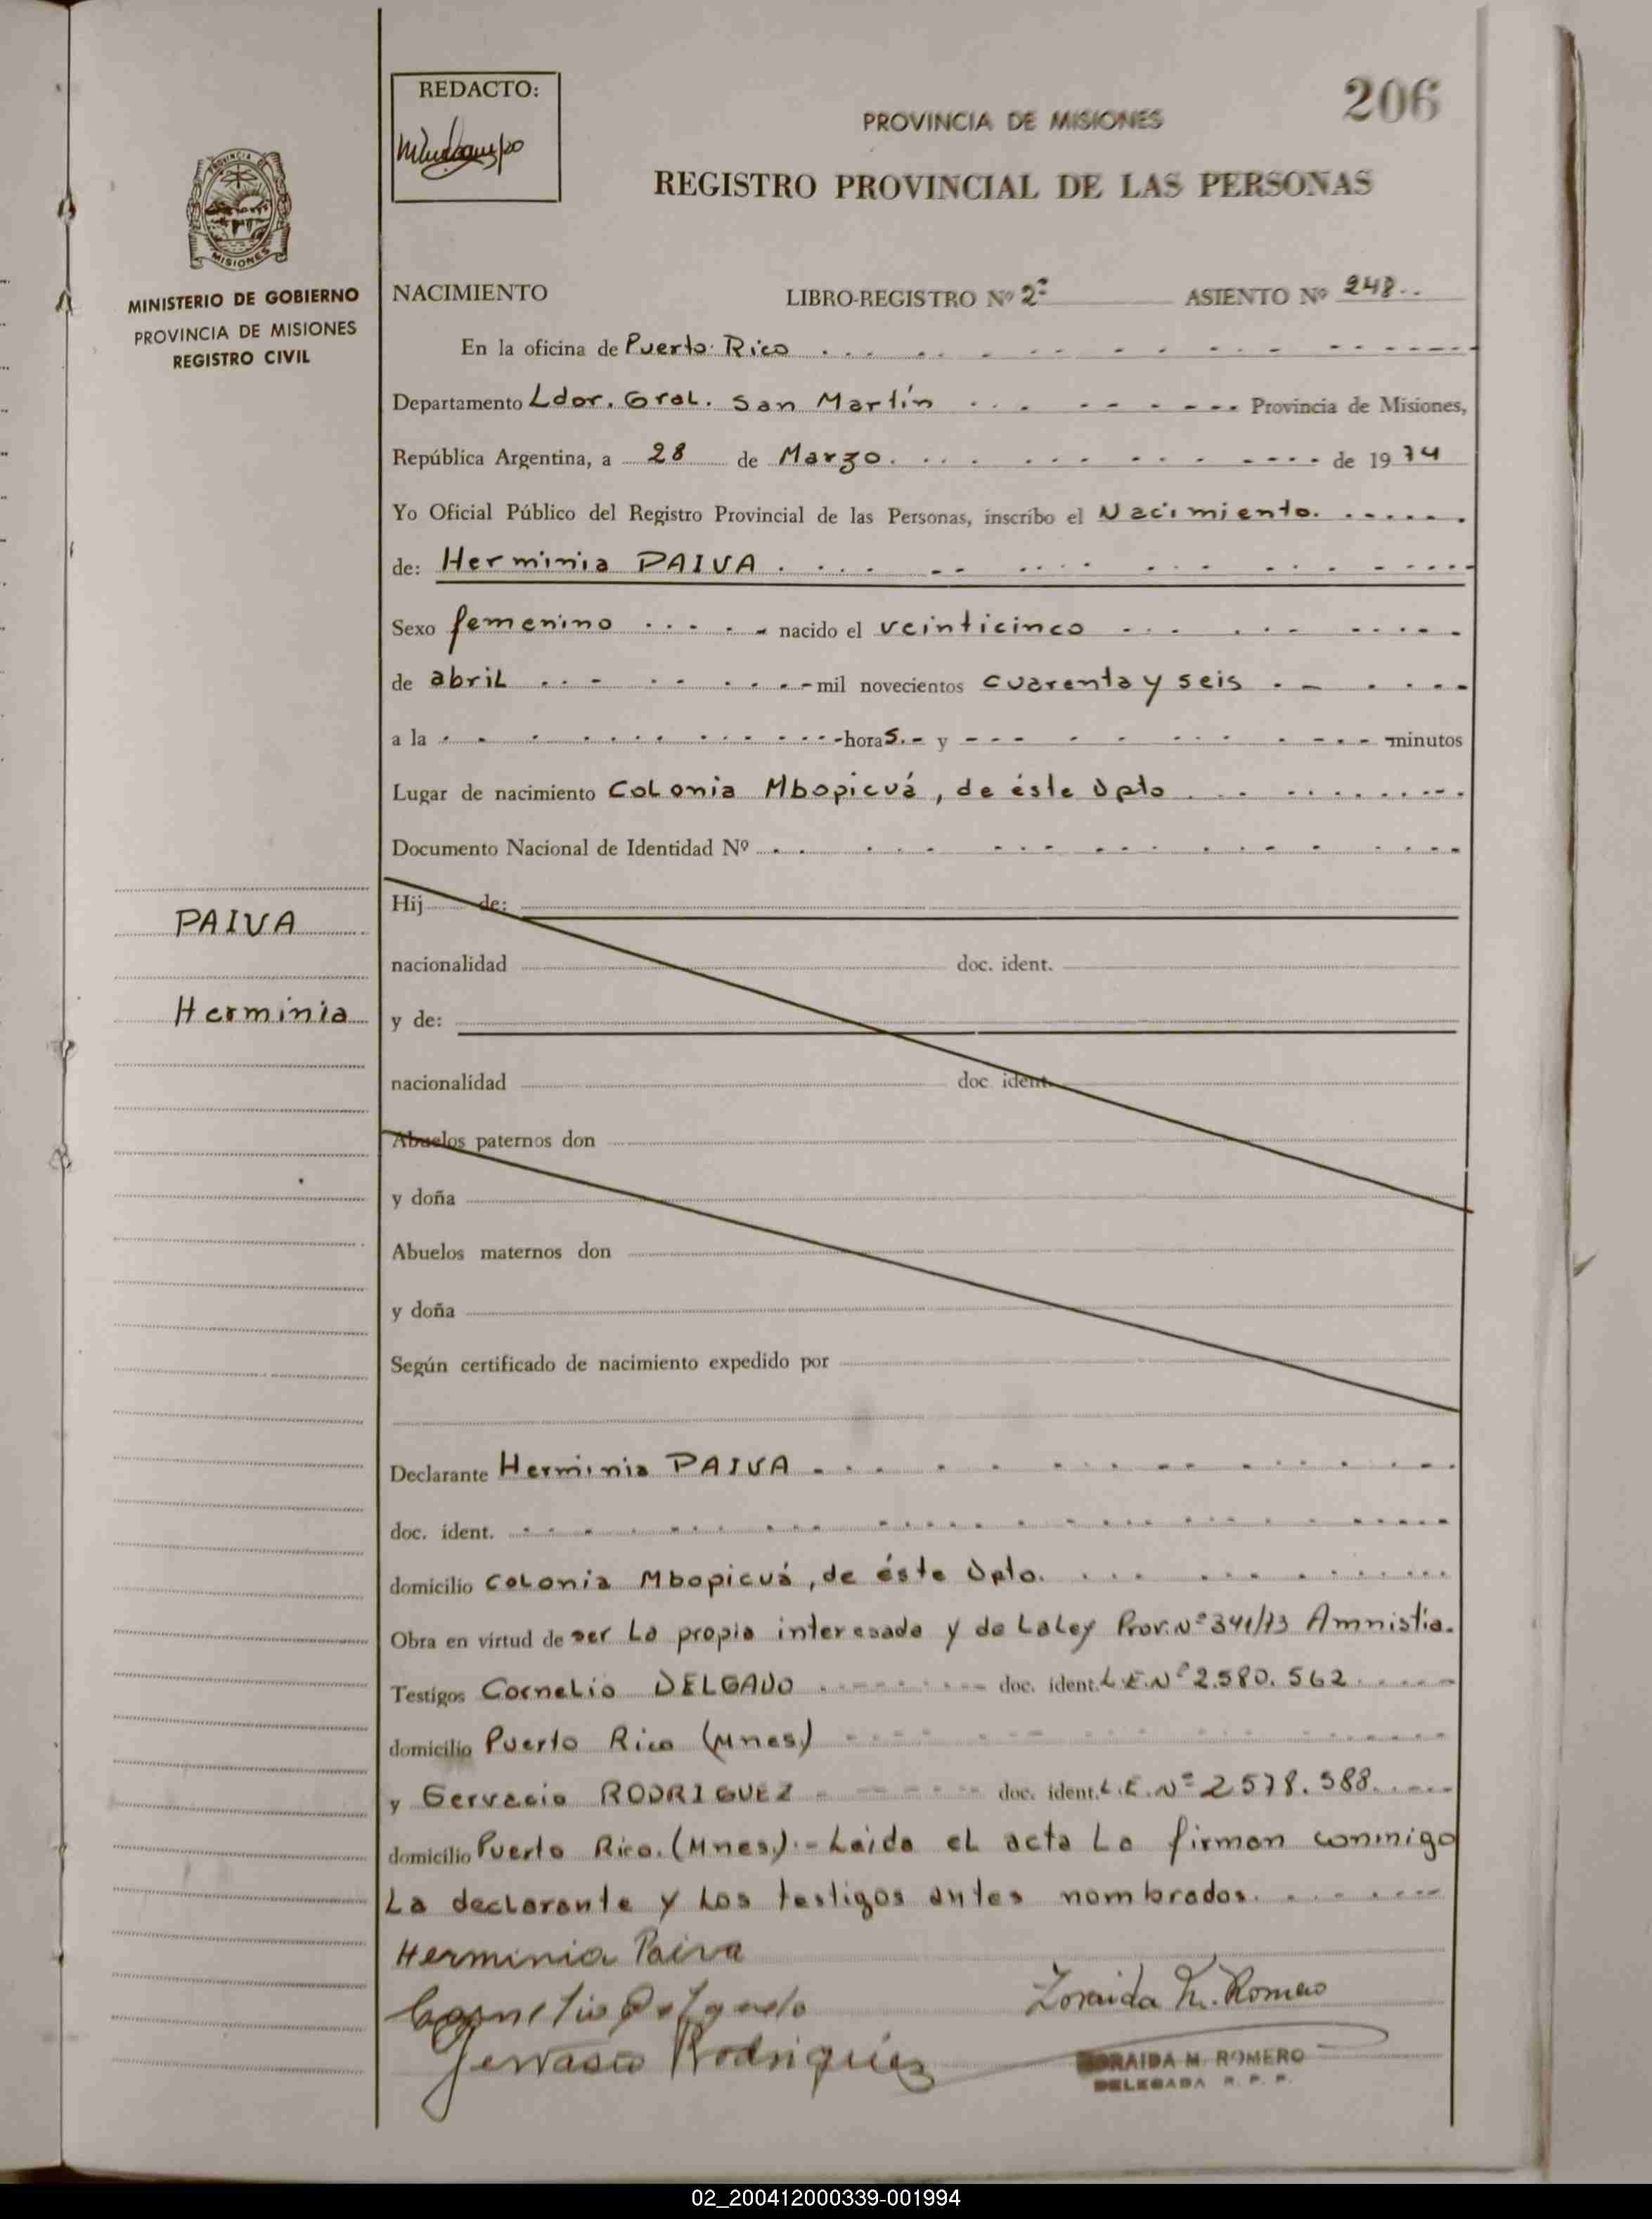 206
REDACTO:
PROVINCIA DE MISIONES
REGISTRO PROVINCIAL DE LAS PERSONAS
PROVINCIA DE
MISIONES
MINISTERIO DE GOBIERNO
PROVINCIA DE MISIONES
REGISTRO CIVIL
NACIMIENTO LIBRO-REGISTRO Nº 2º ASIENTO Nº 248
En la oficina de Puerto Rico
Departamento Ldor. Gral. San Martín Provincia de Misiones,
República Argentina, a 28 de Marzo de 1974
Yo Oficial Público del Registro Provincial de las Personas, inscribo el Nacimiento.
de: Herminia PAIVA
Sexo femenino nacido el veinticinco
de abril mil novecientos cuarenta y seis
a la horas.- y minutos
Lugar de nacimiento Colonia Mbopicuá, de éste Dpto
Documento Nacional de Identidad Nº
Hij de:
PAIVA
nacionalidad doc. ident.
Herminia
y de:
nacionalidad doc ident.
Abuelos paternos don
y doña
Abuelos maternos don
y doña
Según certificado de nacimiento expedido por
Declarante Herminia PAIVA
doc. ident.
domicilio Colonia Mbopicuá, de éste Dpto.
Obra en virtud de ser La propia interesada y de La Ley Prov. Nº 341/73 Amnistía.
Testigos Cornelio DELGADO doc. ident. L.E. Nº 2.580.562
domicilio Puerto Rico (Mnes)
y Gervacio RODRIGUEZ doc. ident. L.E. Nº 2578.588
domicilio Puerto Rico. (Mnes).- Leida el acta La firman conmigo
La declarante y Los testigos antes nombrados.
Herminia Paiva
Cornelio Delgado Zoraida M. Romero
Gervasio Rodriguez
ZORAIDA M. ROMERO
DELEGADA R. P. P.
02_200412000339-001994